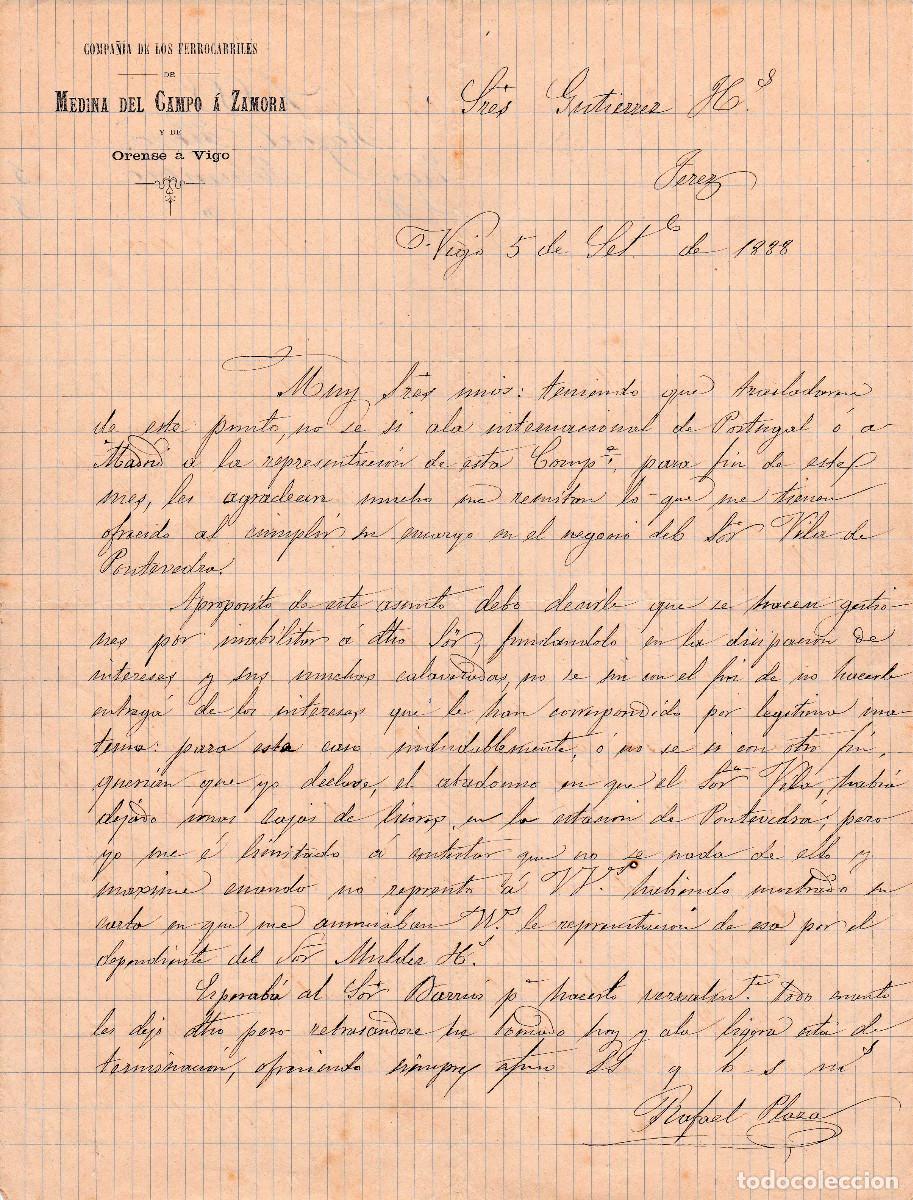 COMPAÑÍA DE LOS FERROCARRILES
DE
MEDINA DEL CAMPO Á ZAMORA
Y DE
Orense á Vigo
Sres Gutierrez Hs.
Jerez
Vigo 5 de Set.e de 1888
Muy Sres mios: teniendo que trasladarme
de este punto, no se si ala internacional de Portugal ó a
Madrid a la representación de esta Comp.a, para fin de este
mes, les agradecere mucho me remitan lo que me tienen
ofrecido al cumplir su encargo en el negocio del Sor Vila de
Pontevedra.
Aproposito de este asunto debo decirle que se hacen gestio-
nes por inabilitar á dho Sor, fundandolo en la disipación de
intereses y sus muchas calaveradas, no se sin con el fin de no hacerle
entrega de los intereses que le han correspondido por legitima ma-
terna: para este caso indudablemente, ó no se si con otro fin,
querian que yo declare, el abandono en que el Sor Vila, habia
dejado unas cajas de licores, en la estacion de Pontevedra; pero
yo me é limitado á contestar que no se nada de ello y
maxime cuando no represento á VV. habiendo mostrado su
carta en que me anunciaban Vs. la representación de esa por el
dependiente del Sor Mulder Hs.
Esperaba al Sor Barrus pa hacerlo verbalmte. todo cuanto
les dejo dho, pero retrasandose he tomado hoy y ala ligera esta de
terminación, ofreciendo siempre afmo SS q b s ms
Rafael Plaza
todocoleccion